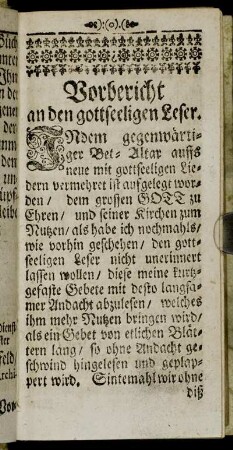 ):(o).(
Vorbericht
an den gottseeligen Leser.
INdem gegenwärti-
ger Bet-Altar auffs
neue mit gottseeligen Lie-
dern vermehret ist aufgelegt wor-
den / dem grossen GOTT zu
Ehren / und seiner Kirchen zum
Nutzen / als habe ich nochmahls /
wie vorhin geschehen / den gott-
seeligen Leser nicht unerinnert
lassen wollen / diese meine kurtz-
gefaste Gebete mit desto langsa-
mer Andacht abzulesen / welches
ihm mehr Nutzen bringen wird /
als ein Gebet von etlichen Blät-
tern lang / so ohne Andacht ge-
schwind hingelesen und geplap-
pert wird. Sintemahl wir ohne
diß